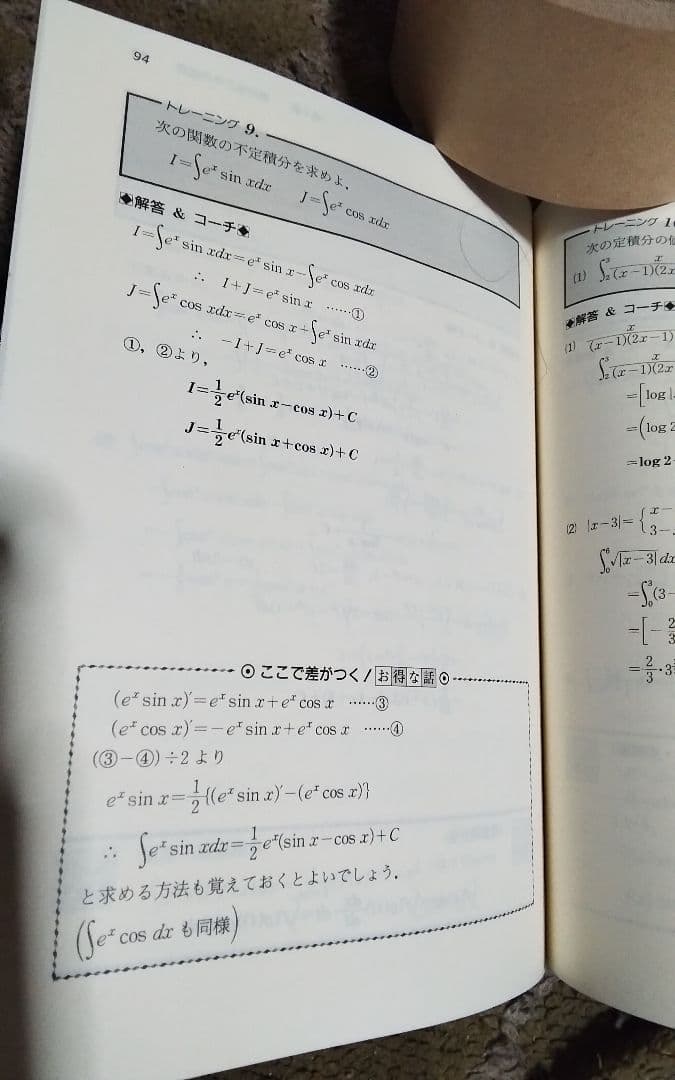 94
トレーニング 9.
次の関数の不定積分を求めよ.
I=∫eˣ sin xdx J=∫eˣ cos xdx
◆解答 & コーチ◆
I=∫eˣ sin xdx=eˣ sin x−∫eˣ cos xdx
∴ I+J=eˣ sin x ……①
J=∫eˣ cos xdx=eˣ cos x+∫eˣ sin xdx
∴ −I+J=eˣ cos x ……②
①, ②より,
I=1/2 eˣ(sin x−cos x)+C
J=1/2 eˣ(sin x+cos x)+C
◎ ここで差がつく! お得な話 ◎
(eˣ sin x)′=eˣ sin x+eˣ cos x ……③
(eˣ cos x)′=−eˣ sin x+eˣ cos x ……④
(③−④)÷2 より
eˣ sin x=1/2{(eˣ sin x)′−(eˣ cos x)′}
∴ ∫eˣ sin xdx=1/2 eˣ(sin x−cos x)+C
と求める方法も覚えておくとよいでしょう.
(∫eˣ cos dx も同様)
トレーニング 1
次の定積分の
(1) ∫₂³ x/(x−1)(2x
◆解答 & コーチ◆
(1) x/(x−1)(2x−1)
∫₂³ x/(x−1)(2x
=[log|
=(log 2
=log 2
(2) |x−3|={x−
3−
∫₀⁶√|x−3| dx
=∫₀³(3−
=[−2/3
=2/3・3